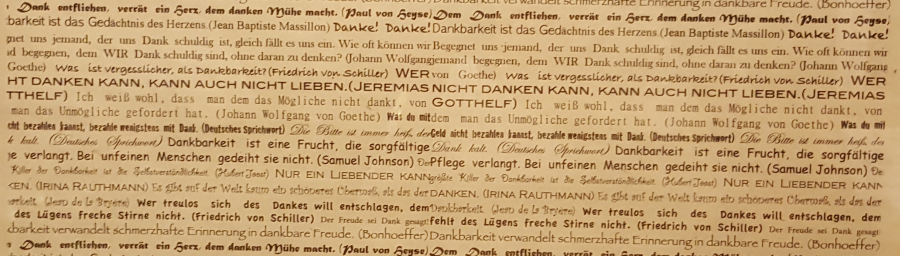 verwandelt schmerzhafte Erinnerung in dankbare Freude. (Bonhoeffer)
Dank entfliehen, verrät ein Herz, dem danken Mühe macht. (Paul von Heyse) Dem Dank entfliehen, verrät ein Herz, dem danken Mühe macht. (Paul von Heyse)
barkeit ist das Gedächtnis des Herzens (Jean Baptiste Massillon) Danke! Danke! Dankbarkeit ist das Gedächtnis des Herzens (Jean Baptiste Massillon) Danke! Danke!
gnet uns jemand, der uns Dank schuldig ist, gleich fällt es uns ein. Wie oft können wir Begegnet uns jemand, der uns Dank schuldig ist, gleich fällt es uns ein. Wie oft können wir
nd begegnen, dem WIR Dank schuldig sind, ohne daran zu denken? (Johann Wolfgang jemand begegnen, dem WIR Dank schuldig sind, ohne daran zu denken? (Johann Wolfgang
Goethe) Was ist vergesslicher, als Dankbarkeit? (Friedrich von Schiller) WER von Goethe) Was ist vergesslicher, als Dankbarkeit? (Friedrich von Schiller) WER
HT DANKEN KANN, KANN AUCH NICHT LIEBEN. (JEREMIAS NICHT DANKEN KANN, KANN AUCH NICHT LIEBEN. (JEREMIAS
TTHELF) Ich weiß wohl, dass man dem das Mögliche nicht dankt, von GOTTHELF) Ich weiß wohl, dass man dem das Mögliche nicht dankt, von
man das Unmögliche gefordert hat. (Johann Wolfgang von Goethe) Was du mit dem man das Unmögliche gefordert hat. (Johann Wolfgang von Goethe) Was du mit
cht bezahlen kannst, bezahle wenigstens mit Dank. (Deutsches Sprichwort) Die Bitte ist immer heiß, der Geld nicht bezahlen kannst, bezahle wenigstens mit Dank. (Deutsches Sprichwort) Die Bitte ist immer heiß, der
k kalt. (Deutsches Sprichwort) Dankbarkeit ist eine Frucht, die sorgfältige Dank kalt. (Deutsches Sprichwort) Dankbarkeit ist eine Frucht, die sorgfältige
ge verlangt. Bei unfeinen Menschen gedeiht sie nicht. (Samuel Johnson) Der Pflege verlangt. Bei unfeinen Menschen gedeiht sie nicht. (Samuel Johnson) Der
Killer der Dankbarkeit ist die Selbstverständlichkeit. (Hubert Joost) NUR EIN LIEBENDER KANN größte Killer der Dankbarkeit ist die Selbstverständlichkeit. (Hubert Joost) NUR EIN LIEBENDER KANN
KEN. (IRINA RAUTHMANN) Es gibt auf der Welt kaum ein schöneres Übermaß, als das der DANKEN. (IRINA RAUTHMANN) Es gibt auf der Welt kaum ein schöneres Übermaß, als das der
(Jean de la Bryere) Wer treulos sich des Dankes will entschlagen, dem Dankbarkeit. (Jean de la Bryere) Wer treulos sich des Dankes will entschlagen, dem
des Lügens freche Stirne nicht. (Friedrich von Schiller) Der Freude sei Dank gesagt! fehlt des Lügens freche Stirne nicht. (Friedrich von Schiller) Der Freude sei Dank gesagt!
kbarkeit verwandelt schmerzhafte Erinnerung in dankbare Freude. (Bonhoeffer) Dankbarkeit verwandelt schmerzhafte Erinnerung in dankbare Freude. (Bonhoeffer)
Dank entfliehen, verrät ein Herz, dem danken Mühe macht. (Paul von Heyse) Dem Dank entfliehen, verrät ein Herz, dem danken Mühe macht. (Paul von Heyse)